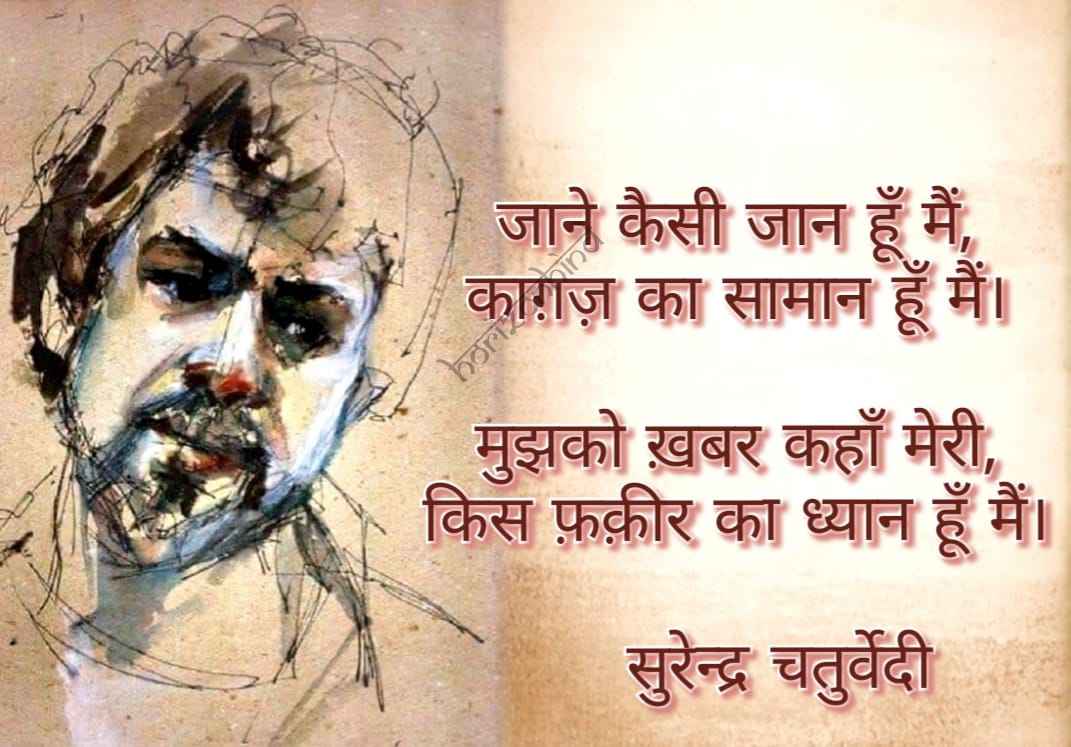 जाने कैसी जान हूँ मैं,
काग़ज़ का सामान हूँ मैं।
मुझको ख़बर कहाँ मेरी,
किस फ़क़ीर का ध्यान हूँ मैं।
सुरेन्द्र चतुर्वेदी